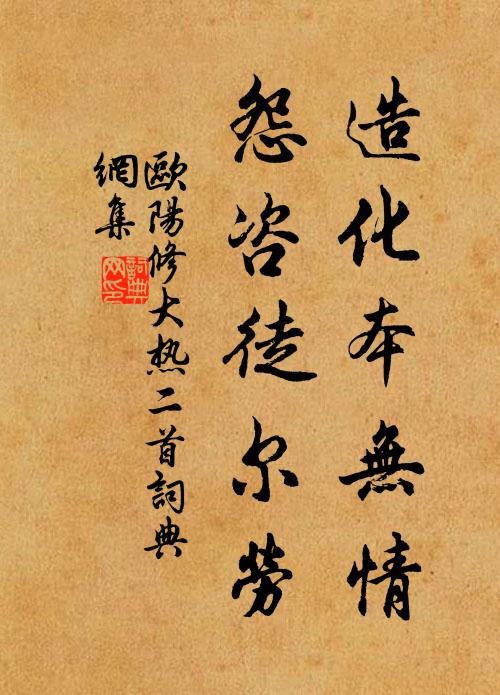 造化本無情
怨咨徒尔勞
歐陽修大热二首詞典
網集
詞典
网印